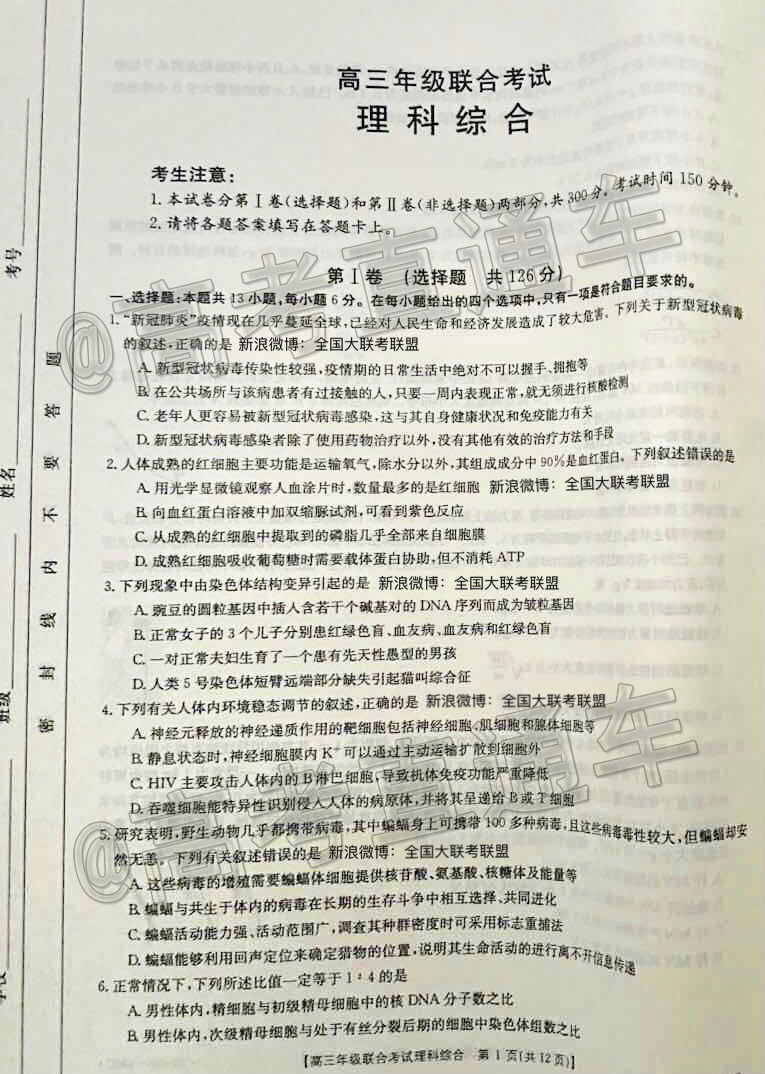 高三年级联合考试
理科综合
考生注意:
1.本试卷分第Ⅰ卷(选择题)和第Ⅱ卷(非选择题)两部分,共300分。考试时间150分钟。
2.请将各题答案填写在答题卡上。
第Ⅰ卷 (选择题 共126分)
一、选择题:本题共13小题,每小题6分。在每小题给出的四个选项中,只有一项是符合题目要求的。
1.“新冠肺炎”疫情现在几乎蔓延全球,已经对人民生命和经济发展造成了较大危害。下列关于新型冠状病毒
的叙述,正确的是 新浪微博:全国大联考联盟
A.新型冠状病毒传染性较强,疫情期的日常生活中绝对不可以握手、拥抱等
B.在公共场所与该病患者有过接触的人,只要一周内表现正常,就无须进行核酸检测
C.老年人更容易被新型冠状病毒感染,这与其自身健康状况和免疫能力有关
D.新型冠状病毒感染者除了使用药物治疗以外,没有其他有效的治疗方法和手段
2.人体成熟的红细胞主要功能是运输氧气,除水分以外,其组成成分中90%是血红蛋白。下列叙述错误的是
A.用光学显微镜观察人血涂片时,数量最多的是红细胞 新浪微博:全国大联考联盟
B.向血红蛋白溶液中加双缩脲试剂,可看到紫色反应
C.从成熟的红细胞中提取到的磷脂几乎全部来自细胞膜
D.成熟红细胞吸收葡萄糖时需要载体蛋白协助,但不消耗ATP
3.下列现象中由染色体结构变异引起的是 新浪微博:全国大联考联盟
A.豌豆的圆粒基因中插入含若干个碱基对的DNA序列而成为皱粒基因
B.正常女子的3个儿子分别患红绿色盲、血友病、血友病和红绿色盲
C.一对正常夫妇生育了一个患有先天性愚型的男孩
D.人类5号染色体短臂远端部分缺失引起猫叫综合征
4.下列有关人体内环境稳态调节的叙述,正确的是 新浪微博:全国大联考联盟
A.神经元释放的神经递质作用的靶细胞包括神经细胞、肌细胞和腺体细胞等
B.静息状态时,神经细胞膜内K⁺可以通过主动运输扩散到细胞外
C.HIV主要攻击人体内的B淋巴细胞,导致机体免疫功能严重降低
D.吞噬细胞能特异性识别侵入人体的病原体,并将其呈递给B或T细胞
5.研究表明,野生动物几乎都携带病毒,其中蝙蝠身上可携带100多种病毒,且这些病毒毒性较大,但蝙蝠却安
然无恙。下列有关叙述错误的是 新浪微博:全国大联考联盟
A.这些病毒的增殖需要蝙蝠体细胞提供核苷酸、氨基酸、核糖体及能量等
B.蝙蝠与共生于体内的病毒在长期的生存斗争中相互选择、共同进化
C.蝙蝠活动能力强、活动范围广,调查其种群密度时可采用标志重捕法
D.蝙蝠能够利用回声定位来确定猎物的位置,说明其生命活动的进行离不开信息传递
6.正常情况下,下列所述比值一定等于1:4的是
A.男性体内,精细胞与初级精母细胞中的核DNA分子数之比
B.男性体内,次级精母细胞与处于有丝分裂后期的细胞中染色体组数之比
【高三年级联合考试理科综合 第1页(共12页)】
考号
姓名
班级
学校
密封线内不要答题
@高考直通车
@高考直通车